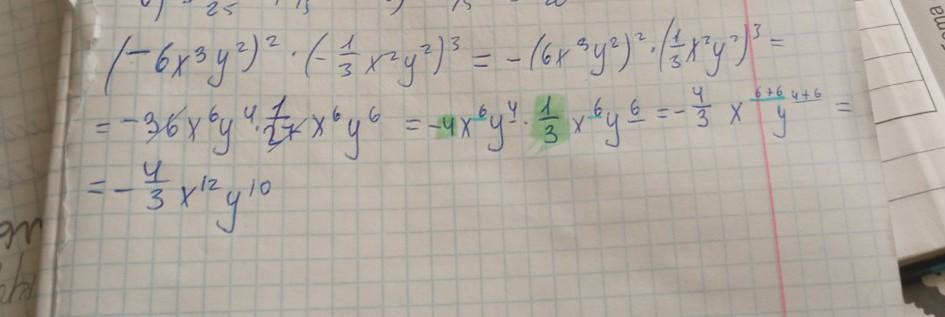 (-6x³y²)² · (-1/3 x²y²)³ = -(6x³y²)² · (1/3 x²y²)³ =
= -36x⁶y⁴ · 1/27 x⁶y⁶ = -4x⁶y⁴ · 1/3 x⁶y⁶ = -4/3 x⁶⁺⁶ y⁴⁺⁶ =
= -4/3 x¹²y¹⁰